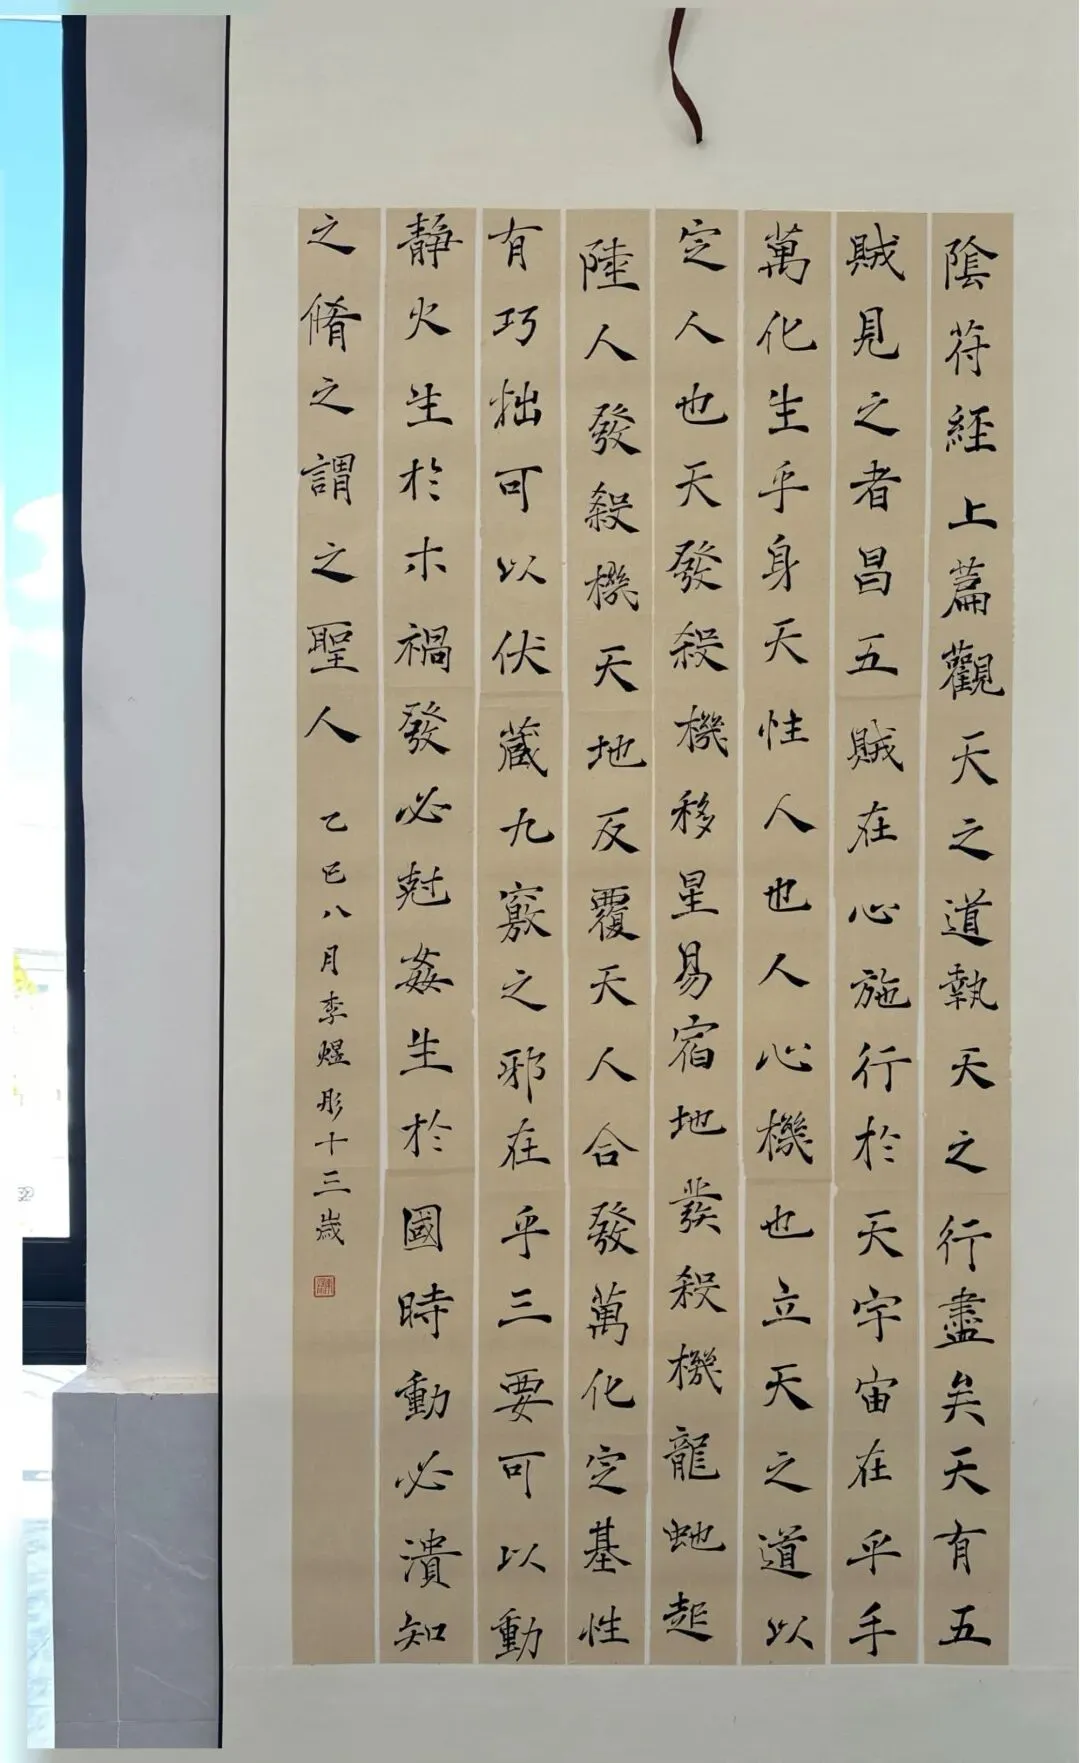 陰符經上篇觀天之道執天之行盡矣天有五
賊見之者昌五賊在心施行於天宇宙在乎手
萬化生乎身天性人也人心機也立天之道以
定人也天發殺機移星易宿地發殺機龍虵起
陸人發殺機天地反覆天人合發萬化定基性
有巧拙可以伏藏九竅之邪在乎三要可以動
靜火生於木禍發必尅姦生於國時動必潰知
之脩之謂之聖人
乙巳八月李煜彤十三歲